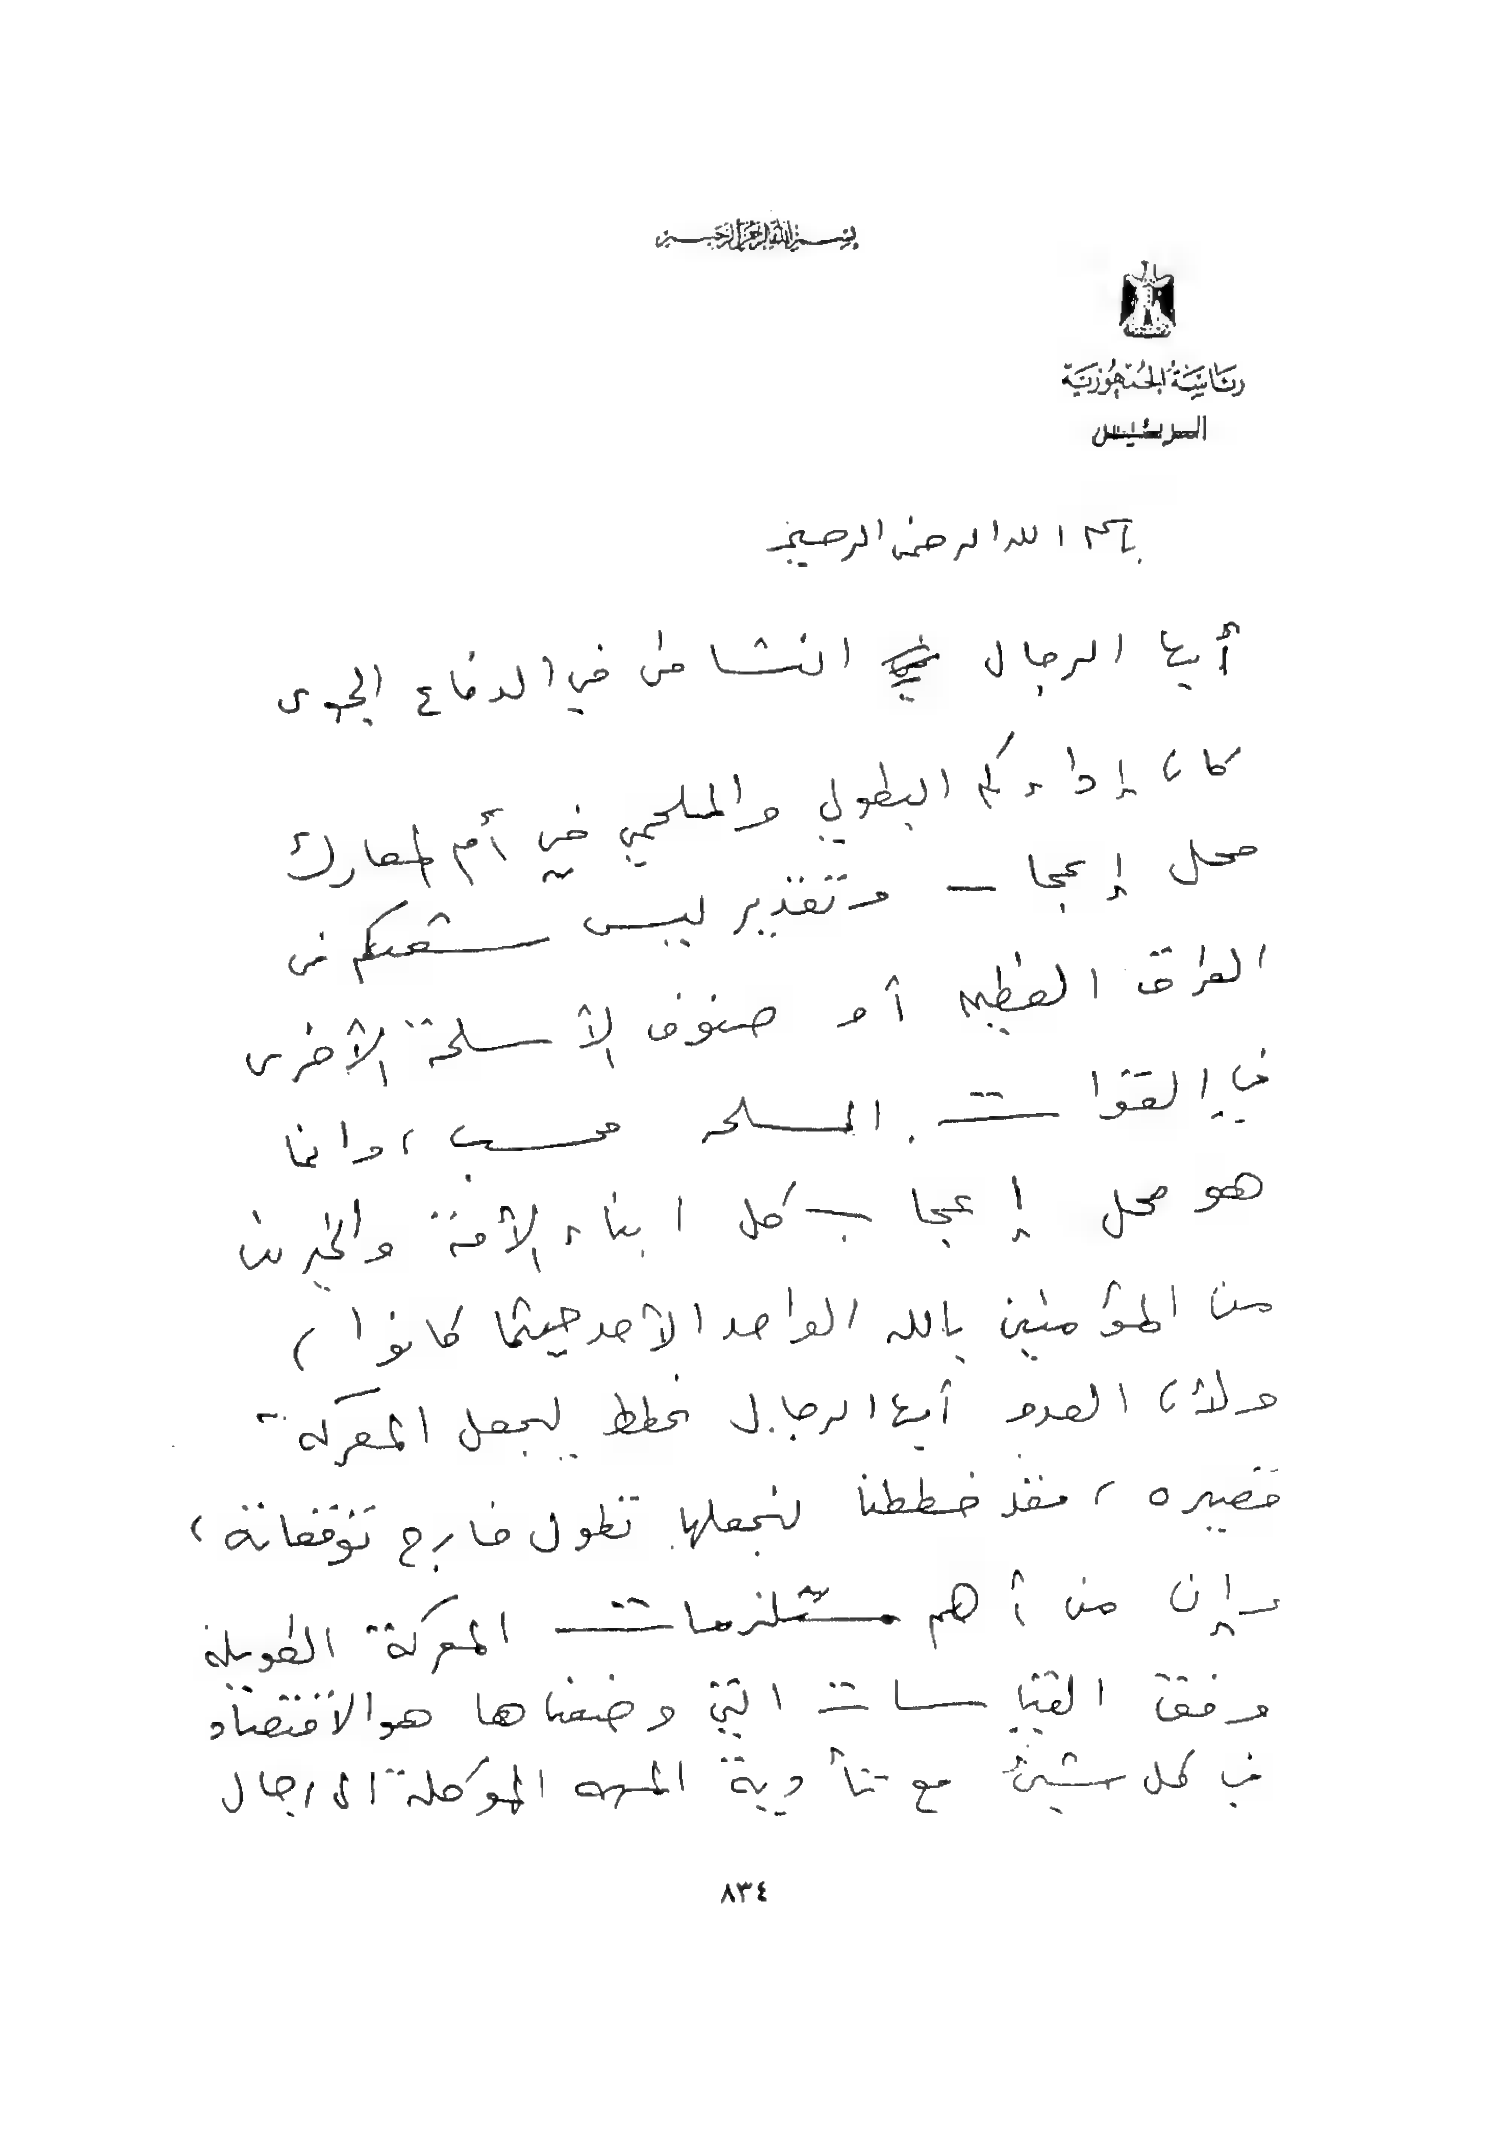 بسم الله الرحمن الرحيم
رئاسة الجمهورية
الرئيس
بسم الله الرحمن الرحيم
أيها الرجال النشامى في الدفاع الجوى
كان إداءكم البطولي والملحمي في أم المعارك
محل إعجاب وتقدير ليس شعبكم في
العراق العظيم أو صنوف الأسلحة الأخرى
في القوات المسلحه فحسب ، وانما
هو محل إعجاب كل ابناء الأمة والخيرين
من المؤمنين بالله الواحد الأحد حيثما كانوا ،
ولأن العدو أيها الرجال خطط ليجعل المعركة
قصيره ، فقد خططنا لنجعلها تطول خارج توقعاته ،
وإن من أهم مستلزمات المعركة الطويلة
وفق القياسات التي وضعناها هو الأقتصاد
في كل شيئ مع تأدية المهمه الموكلة الى رجال
٨٣٤